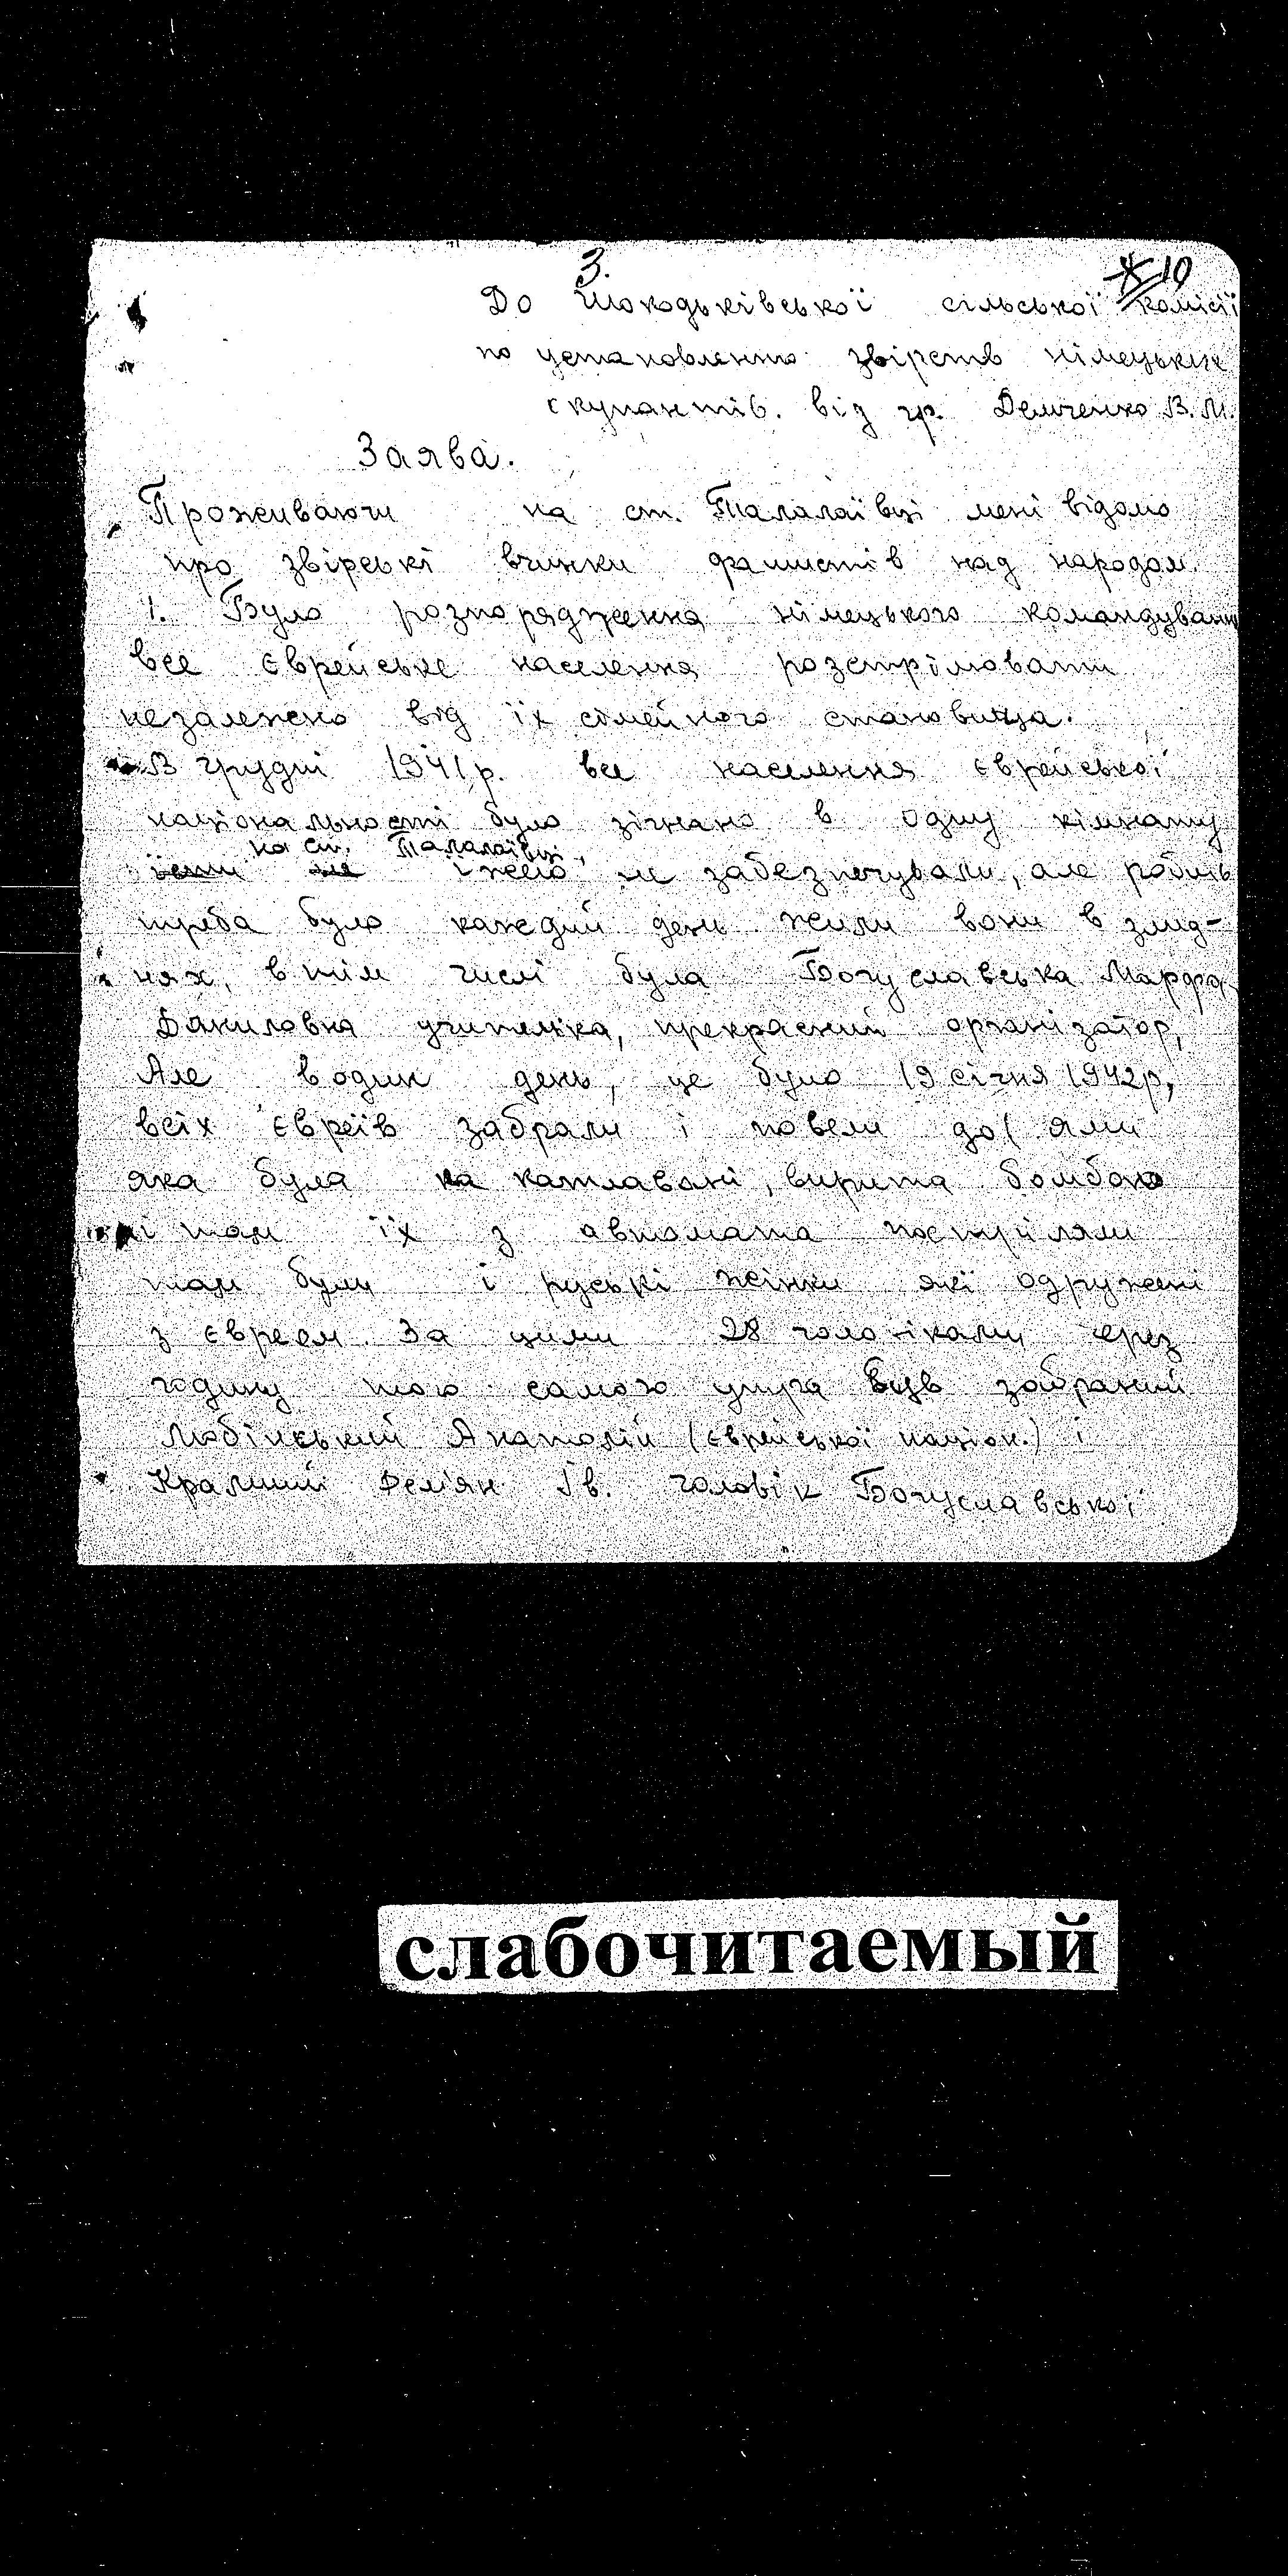 3.
10
До сільської комісії
по установленню звірств німецьких
окупантів. від гр. Демченко В. М.
Заява.
Проживаючи на ст. Талалаївці мені відомо
про звірські вчинки фашистів над народом.
1. Було розпорядження німецького командуванн
все єврейське населення розстрілювати
незалежно від їх сімейного становища.
В грудні 1941 р. все населення єврейської
національності було зігнано в одну кімнату
на ст. Талалаївці,
їжею не забезпечували, але робить
треба було кажедий день жили вони в злид-
нях, в тім числі була Богуславська Марфа
Даниловна учителька, прекрасний організатор,
Але водин день, це було 19 січня 1942 р,
всіх євреїв забрали і повели до ями
яка була на катлавані, вирита бомбою
і там їх з автомата постріляли
там були і руські жінки які одружені
з євреєм. За цими 28 чоловіками через
годину того самого утра був забраний
Любінський Анатолій (єврейської націон.) і
Дем'ян Ів. чоловік Богуславської
слабочитаемый